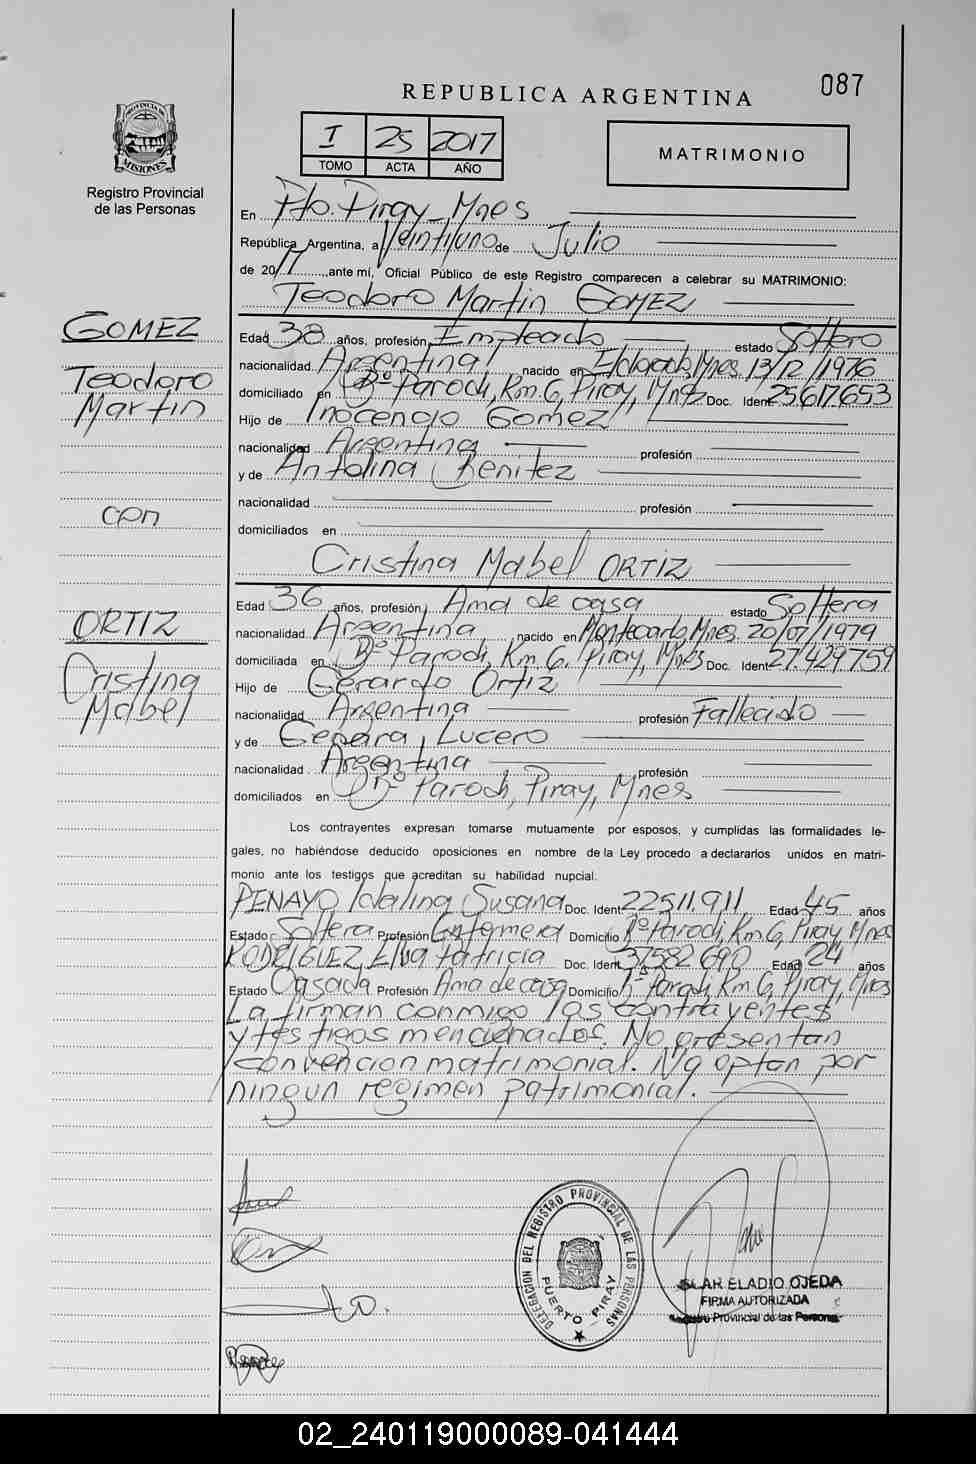 087
REPUBLICA ARGENTINA
I 25 2017
TOMO ACTA AÑO
MATRIMONIO
PROVINCIA DE MISIONES
Registro Provincial
de las Personas
En Pto. Piray_ Mnes
República Argentina, a Veintiuno de Julio
de 2017, ante mí, Oficial Público de este Registro comparecen a celebrar su MATRIMONIO:
Teodoro Martin GOMEZ
GOMEZ
Teodoro
Martin
con
ORTIZ
Cristina
Mabel
Edad 38 años, profesión Empleado estado Soltero
nacionalidad Argentina nacido en Eldorado, Mnes. 13/12/1976
domiciliado en Bº Parodi, Km. 6, Piray, Mnes Doc. Ident 25.617.653
Hijo de Inocencio Gomez
nacionalidad Argentina profesión
y de Antolina Benitez
nacionalidad profesión
domiciliados en
Cristina Mabel ORTIZ
Edad 36 años, profesión Ama de casa estado Soltera
nacionalidad Argentina nacido en Montecarlo, Mnes. 20/07/1979
domiciliada en Bº Parodi, Km. 6, Piray, Mnes Doc. Ident 27.429.759
Hijo de Gerardo Ortiz
nacionalidad Argentina profesión Fallecido
y de Genara Lucero
nacionalidad Argentina profesión
domiciliados en Bº Parodi, Piray, Mnes
Los contrayentes expresan tomarse mutuamente por esposos, y cumplidas las formalidades le-
gales, no habiéndose deducido oposiciones en nombre de la Ley procedo a declararlos unidos en matri-
monio ante los testigos que acreditan su habilidad nupcial.
PENAYO Idalina Susana Doc. Ident 22511.911 Edad 45 años
Estado Soltera Profesión Enfermera Domicilio Bº Parodi, Km. 6, Piray, Mnes
RODRIGUEZ, Elva Patricia Doc. Ident. 37582690 Edad 24 años
Estado Casada Profesión Ama de casa Domicilio Bº Parodi, Km. 6, Piray, Mnes
La firman conmigo los contrayentes
y testigos mencionados. No presentan
convencion matrimonial. No optan por
ningun regimen patrimonial.
DELEGACION DEL REGISTRO PROVINCIAL DE LAS PERSONAS
PUERTO PIRAY
ELADIO OJEDA
FIRMA AUTORIZADA
Registro Provincial de las Personas
02_240119000089-041444